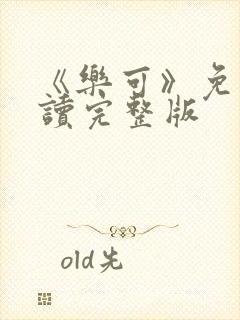 《樂可》免
讀完整版
old先